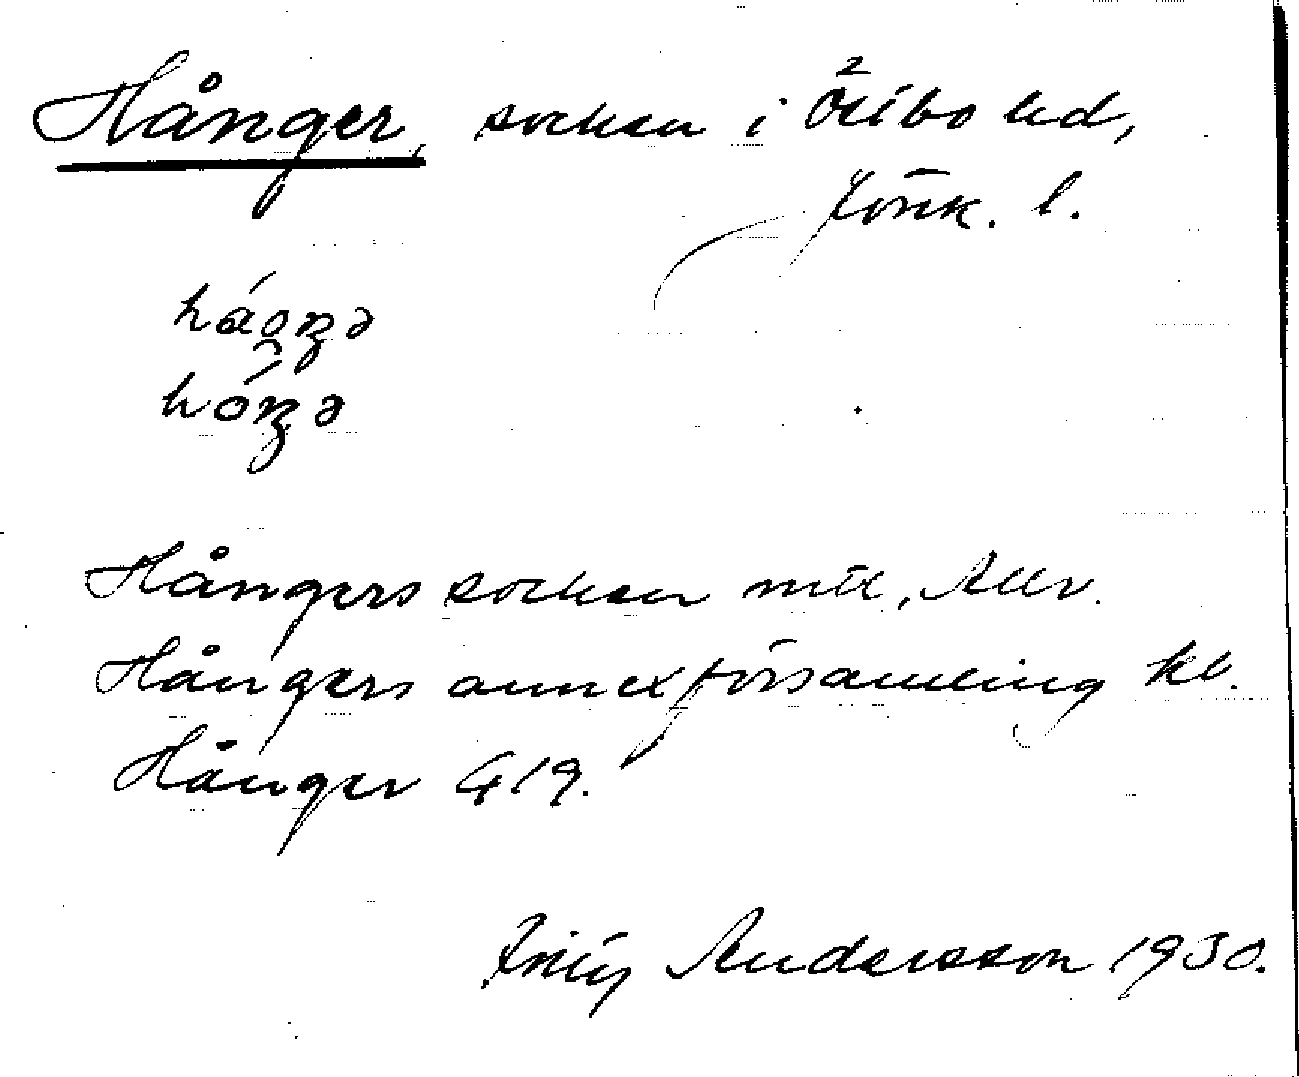 Hånger, socken i Östbo hd,
Jönk. l.
Hångers socken mtl, Allv.
Hångers annexförsamling kb.
Hånger G 19.
Fritz Andersson 1930.